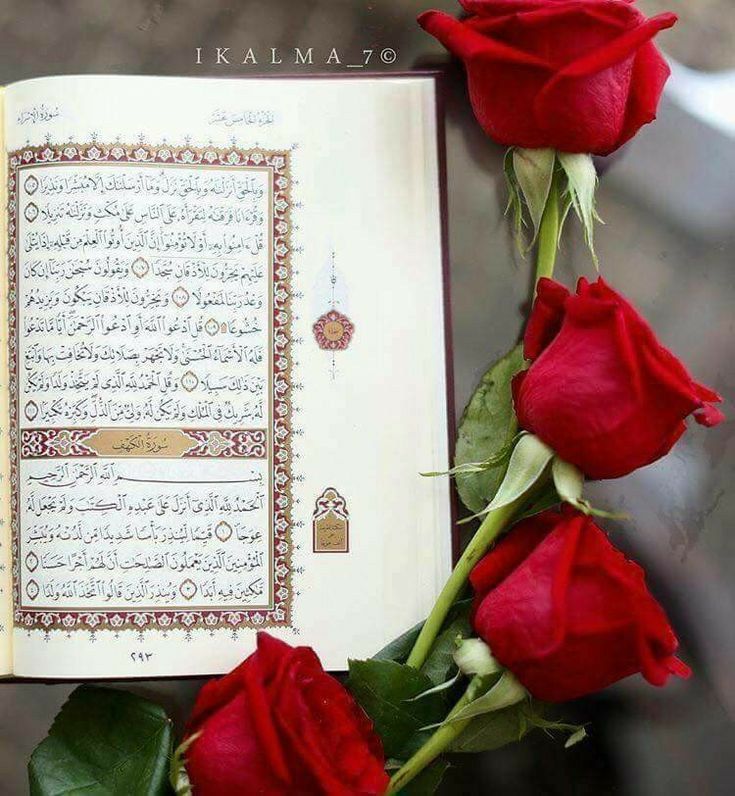 IKALMA_7©
سُورَةُ الإِسْرَاء
الجُزْءُ الخَامِسَ عَشَرَ
وَبِالْحَقِّ أَنزَلْنَاهُ وَبِالْحَقِّ نَزَلَ وَمَا أَرْسَلْنَاكَ إِلَّا مُبَشِّرًا وَنَذِيرًا ١٠٥
وَقُرْءَانًا فَرَقْنَاهُ لِتَقْرَأَهُ عَلَى النَّاسِ عَلَىٰ مُكْثٍ وَنَزَّلْنَاهُ تَنزِيلًا ١٠٦
قُلْ ءَامِنُوا بِهِ أَوْ لَا تُؤْمِنُوا إِنَّ الَّذِينَ أُوتُوا الْعِلْمَ مِن قَبْلِهِ إِذَا يُتْلَىٰ
عَلَيْهِمْ يَخِرُّونَ لِلْأَذْقَانِ سُجَّدًا ١٠٧ وَيَقُولُونَ سُبْحَانَ رَبِّنَا إِن كَانَ
وَعْدُ رَبِّنَا لَمَفْعُولًا ١٠٨ وَيَخِرُّونَ لِلْأَذْقَانِ يَبْكُونَ وَيَزِيدُهُمْ
خُشُوعًا ۩ ١٠٩ قُلِ ادْعُوا اللَّهَ أَوِ ادْعُوا الرَّحْمَٰنَ أَيًّا مَّا تَدْعُوا
فَلَهُ الْأَسْمَاءُ الْحُسْنَىٰ وَلَا تَجْهَرْ بِصَلَاتِكَ وَلَا تُخَافِتْ بِهَا وَابْتَغِ
بَيْنَ ذَٰلِكَ سَبِيلًا ١١٠ وَقُلِ الْحَمْدُ لِلَّهِ الَّذِي لَمْ يَتَّخِذْ وَلَدًا وَلَمْ يَكُن
لَّهُ شَرِيكٌ فِي الْمُلْكِ وَلَمْ يَكُن لَّهُ وَلِيٌّ مِّنَ الذُّلِّ وَكَبِّرْهُ تَكْبِيرًا ١١١
سُورَةُ الكَهْفِ
بِسْمِ اللَّهِ الرَّحْمَٰنِ الرَّحِيمِ
الْحَمْدُ لِلَّهِ الَّذِي أَنزَلَ عَلَىٰ عَبْدِهِ الْكِتَابَ وَلَمْ يَجْعَل لَّهُ
عِوَجًا ١ قَيِّمًا لِّيُنذِرَ بَأْسًا شَدِيدًا مِّن لَّدُنْهُ وَيُبَشِّرَ
الْمُؤْمِنِينَ الَّذِينَ يَعْمَلُونَ الصَّالِحَاتِ أَنَّ لَهُمْ أَجْرًا حَسَنًا ٢
مَّاكِثِينَ فِيهِ أَبَدًا ٣ وَيُنذِرَ الَّذِينَ قَالُوا اتَّخَذَ اللَّهُ وَلَدًا ٤
٢٩٣